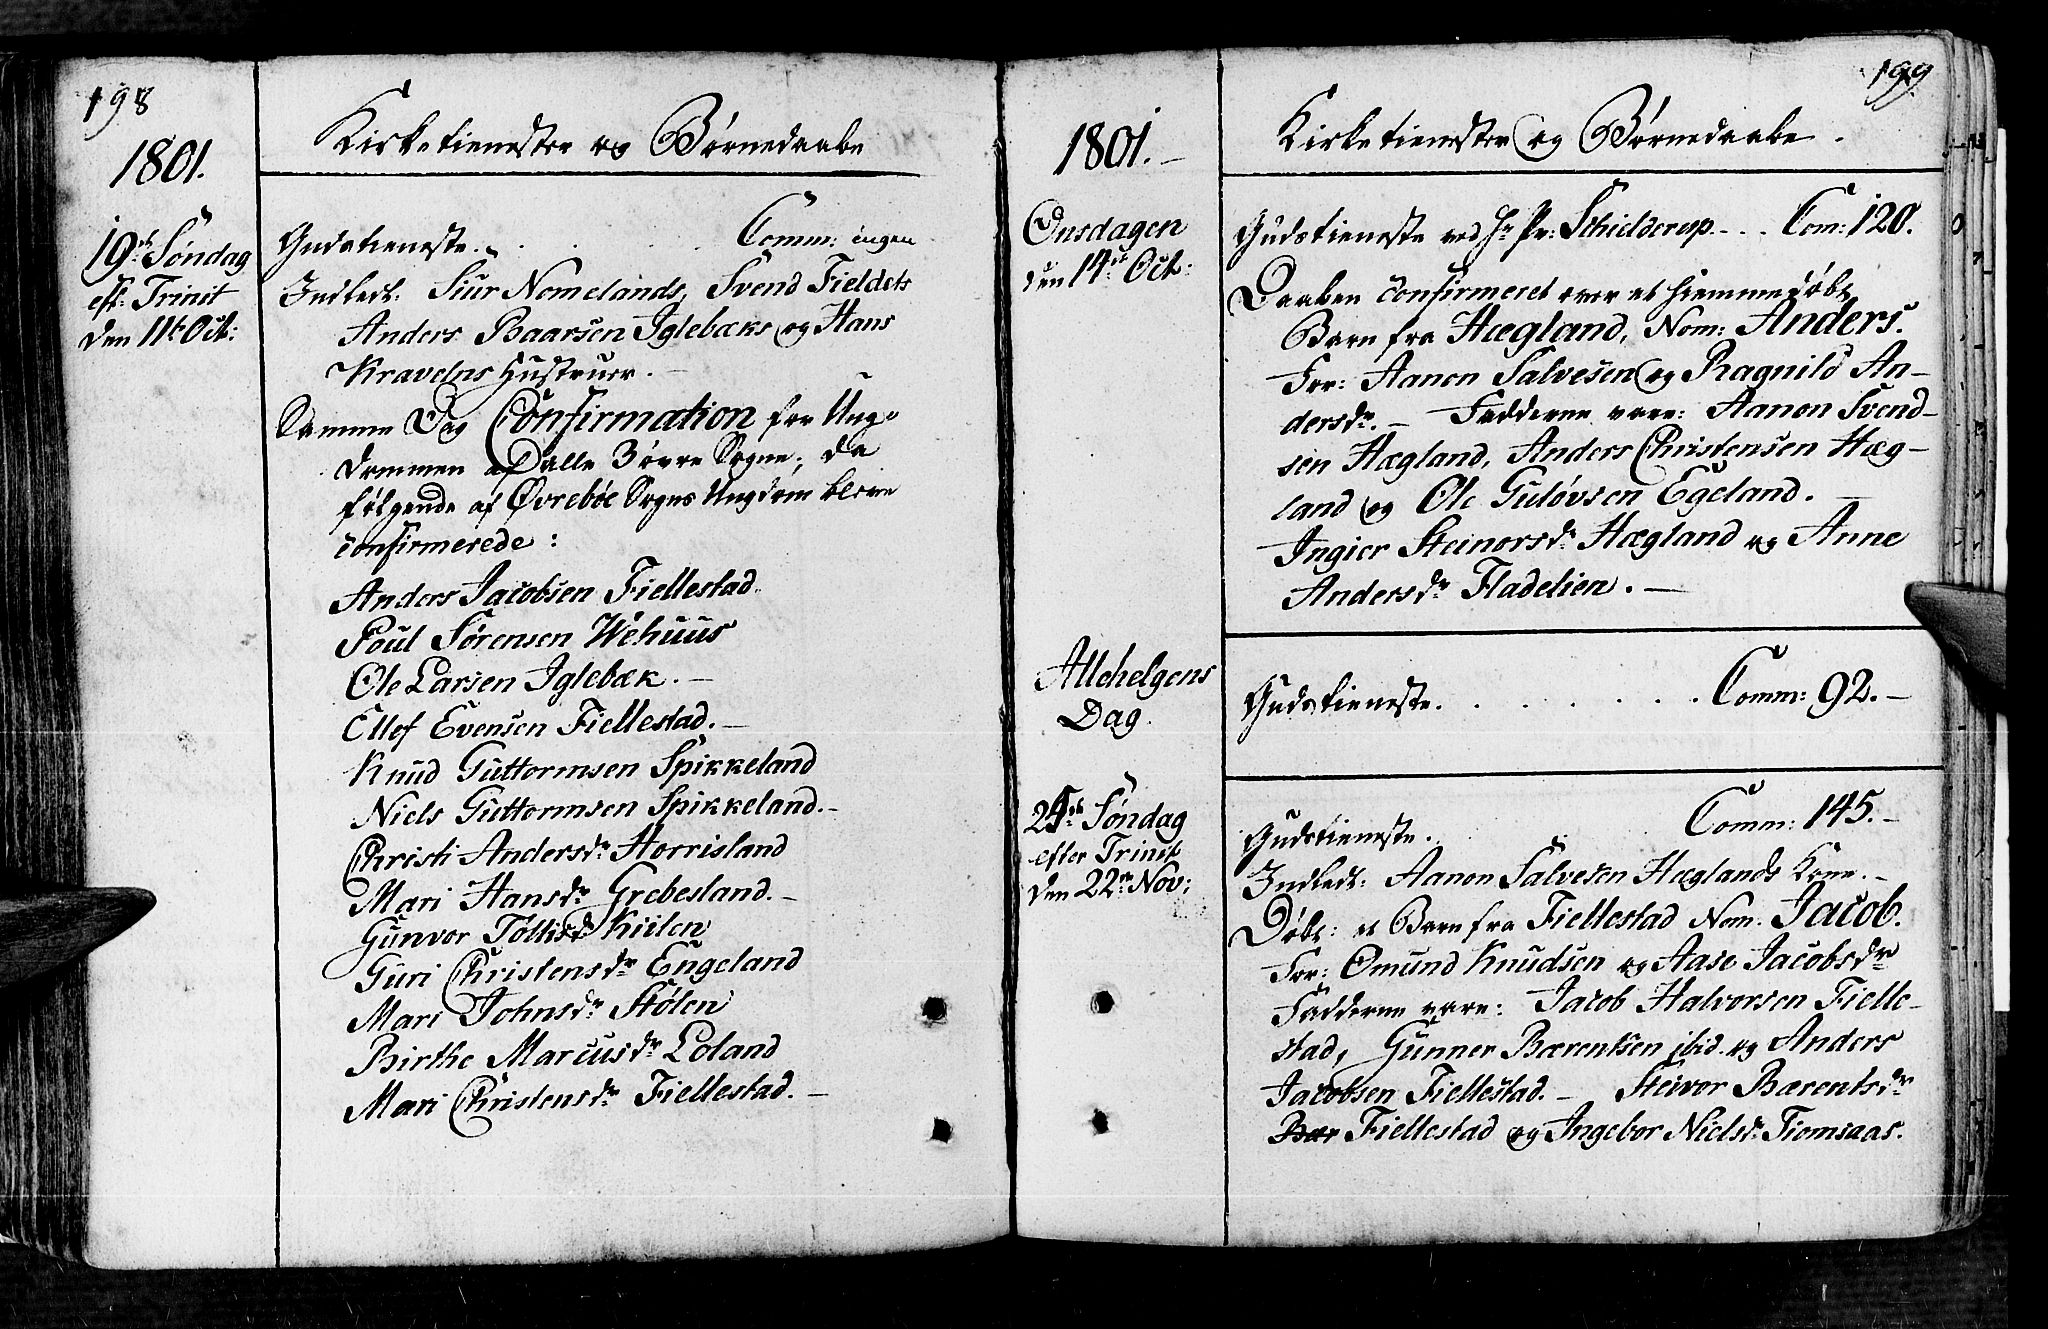 198
1801.
Kirketienester og Børnedaabe
19de Søndag
eft: Trinit
den 11te Oct:
Gudstieneste. . . . . Comm: ingen
Indledt: Siur Nomelands, Svend Fieldets
Anders Baarsen Iglebæks og Hans
Kravelns Hustruer. –
Samme Dag Confirmation for Ung-
dommen af alle 3 øvre Sogne; da
følgende af Øvrebøe Sogns Ungdom bleve
confirmerede:
Anders Jacobsen Fiellestad.
Poul Sørensen Wehuus
Ole Larsen Iglebæk. –
Ellef Evensen Fiellestad. –
Knud Guttormsen Spikkeland
Niels Guttormsen Spikkeland. –
Christi Andersdr Horrisland
Mari Hansdr Grebesland. –
Gunvor Tollisdr Kiilen
Guri Christensdr Engeland
Mari Johnsdr Stølen
Birthe Marcusdr Loland
Mari Christensdr Fiellestad. –
199
1801. –
Kirketienester og Børnedaabe.
Onsdagen
den 14de Oct:
Gudstieneste ved Hr Pr: Schielderup. . . . Com: 120.
Daaben confirmeret over et hiemmedøbt
Barn fra Hægland, Nom: Anders.
For: Aanon Salvesen og Ragnild An-
dersdr. – Fadderne vare: Aanon Svend-
sen Hægland, Anders Christensen Hæg-
land og Ole Gulovsen Egeland. –
Ingier Steinorsdr Hægland og Anne
Andersdr Fladelien. –
Allehelgens
Dag.
Gudstieneste. . . . . . . Comm: 92. –
25de Søndag
efter Trinit
den 22de Nov:
Gudstieneste. Comm: 145. –
Indledt: Aanon Salvesen Hæglands Kone. –
Døbt: et Barn fra Fiellestad Nom: Jacob.
For: Omund Knudsen og Aase Jacobsdr
Fadderne vare: Jacob Halvorsen Fielle-
stad, Gunner Bærentsen ibid. og Anders
Jacobsen Fiellestad. – Steivor Bærentsdr
Bær Fiellestad og Ingebor Nielsdr Tiomsaas.